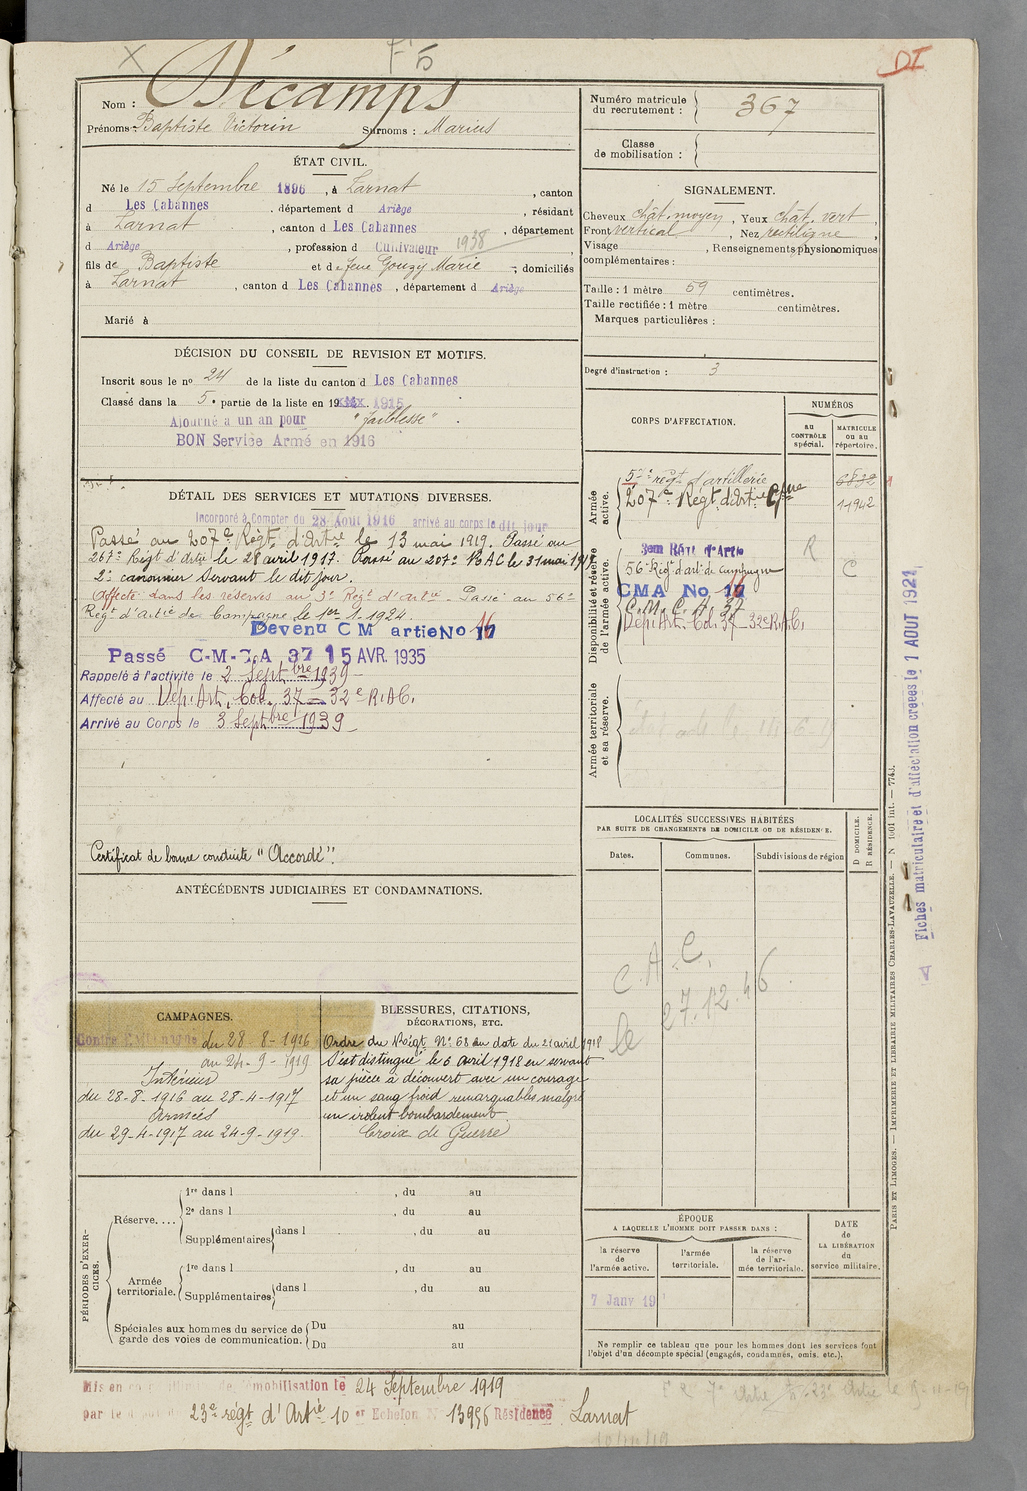 X F 5 DI
Nom : Décamps
Prénoms : Baptiste Victorin Surnoms : Marius
ÉTAT CIVIL.
Né le 15 Septembre 1896, à Larnat, canton
d Les Cabannes, département d Ariège, résidant
à Larnat, canton d Les Cabannes, département
d Ariège, profession d Cultivateur 1938
fils de Baptiste et de feue Gouzy Marie, domiciliés
à Larnat, canton d Les Cabannes, département d Ariège
Marié à
DÉCISION DU CONSEIL DE REVISION ET MOTIFS.
Inscrit sous le no 24 de la liste du canton d Les Cabannes
Classé dans la 5e partie de la liste en 19 1915
Ajourné a un an pour "faiblesse".
BON Service Armé en 1916
DÉTAIL DES SERVICES ET MUTATIONS DIVERSES.
Incorporé à Compter du 28 Aout 1916 arrivé au corps le dit jour
Passé au 207e Régt d'Artie le 13 mai 1919. Passé au
267e Régt d'Artie le 28 avril 1917. Passé au 207e RAC le 31 mai 1919
2e canonnier servant le dit jour.
Affecté dans les réserves au 3e Régt d'Artie. Passé au 56e
Régt d'Artie de Campagne le 1er-1-1924.
Devenu C M artie No 16
Passé C-M-C-A 37 15 AVR. 1935
Rappelé à l'activité le 2 Septbre 1939
Affecté au Dép. Art. Col. 37 - 32e R.A.C.
Arrivé au Corps le 3 Septbre 1939
Certificat de bonne conduite "Accordé".
ANTÉCÉDENTS JUDICIAIRES ET CONDAMNATIONS.
CAMPAGNES.
Contre l'Allemagne du 28-8-1916
au 24-9-1919
Intérieur
du 28-8-1916 au 28-4-1917
Armées
du 29-4-1917 au 24-9-1919.
BLESSURES, CITATIONS,
DÉCORATIONS, ETC.
Ordre du Régt No 68 du date du 21 avril 1918
S'est distingué le 6 avril 1918 en servant
sa pièce à découvert avec un courage
et un sang froid remarquables malgré
un violent bombardement.
Croix de Guerre
PÉRIODES D'EXERCICES.
Réserve....
1re dans l , du au
2e dans l , du au
Supplémentaires dans l , du au
Armée territoriale.
1re dans l , du au
Supplémentaires dans l , du au
Spéciales aux hommes du service de garde des voies de communication.
Du au
Du au
Numéro matricule
du recrutement : 367
Classe
de mobilisation :
SIGNALEMENT.
Cheveux chât. moyen, Yeux chât. vert,
Front vertical, Nez rectiligne,
Visage , Renseignements physionomiques
complémentaires :
Taille : 1 mètre 59 centimètres.
Taille rectifiée : 1 mètre centimètres.
Marques particulières :
Degré d'instruction : 3
CORPS D'AFFECTATION.
NUMÉROS
AU CONTRÔLE spécial.
MATRICULE OU AU répertoire.
Armée active.
57e régt d'artillerie
207e Régt d'Artie Cpne
11942
Disponibilité et réserve de l'armée active.
3em Régt d'Artie
56e Régt d'art. de Campagne
CMA No 16
C.M.C.A. 37
Dép. Art. Col. 37 - 32e R.A.C.
R
C
Armée territoriale et sa réserve.
LOCALITÉS SUCCESSIVES HABITÉES
PAR SUITE DE CHANGEMENTS DE DOMICILE OU DE RÉSIDENCE.
Dates. Communes. Subdivisions de région
D DOMICILE. R RÉSIDENCE.
C.A.C.
le 27.12.46
ÉPOQUE
A LAQUELLE L'HOMME DOIT PASSER DANS :
la réserve de l'armée active.
l'armée territoriale.
la réserve de l'armée territoriale.
DATE de LA LIBÉRATION du service militaire.
7 Janv 19
Ne remplir ce tableau que pour les hommes dont les services font
l'objet d'un décompte spécial (engagés, condamnés, omis, etc.).
Fiches matriculaire et d'affectation creees le 1 AOUT 1921
PARIS ET LIMOGES. — IMPRIMERIE ET LIBRAIRIE MILITAIRES CHARLES-LAVAUZELLE. — N 1001 int. — 7743.
Mis en démobilisation le 24 Septembre 1919
par le 23e régt d'Artie 10er Echelon N 13956 Résidence Larnat